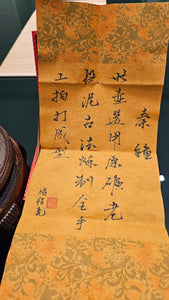 秦鐘
此壺選用原礦老
段泥古法煉制全手
工拍打成型